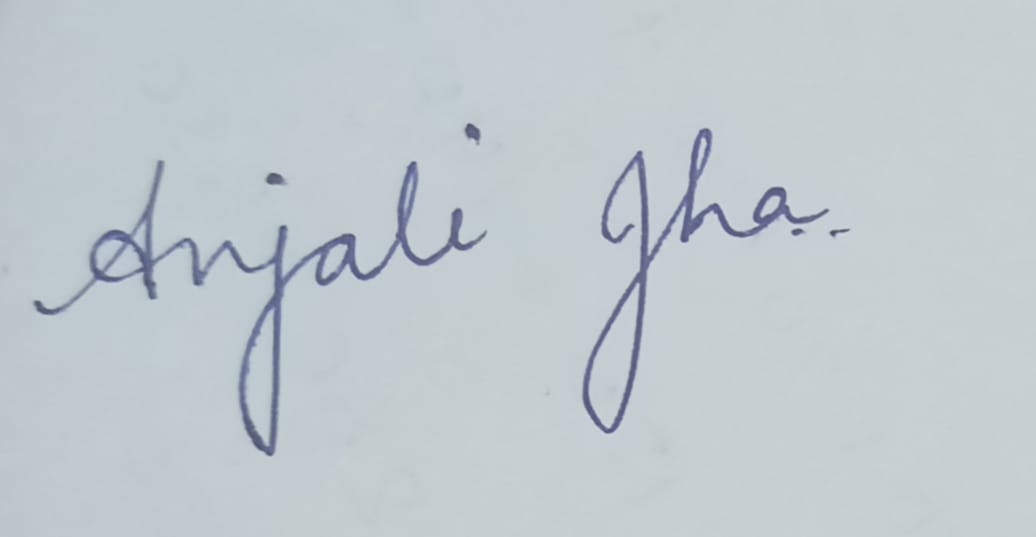 Anjali Jha..